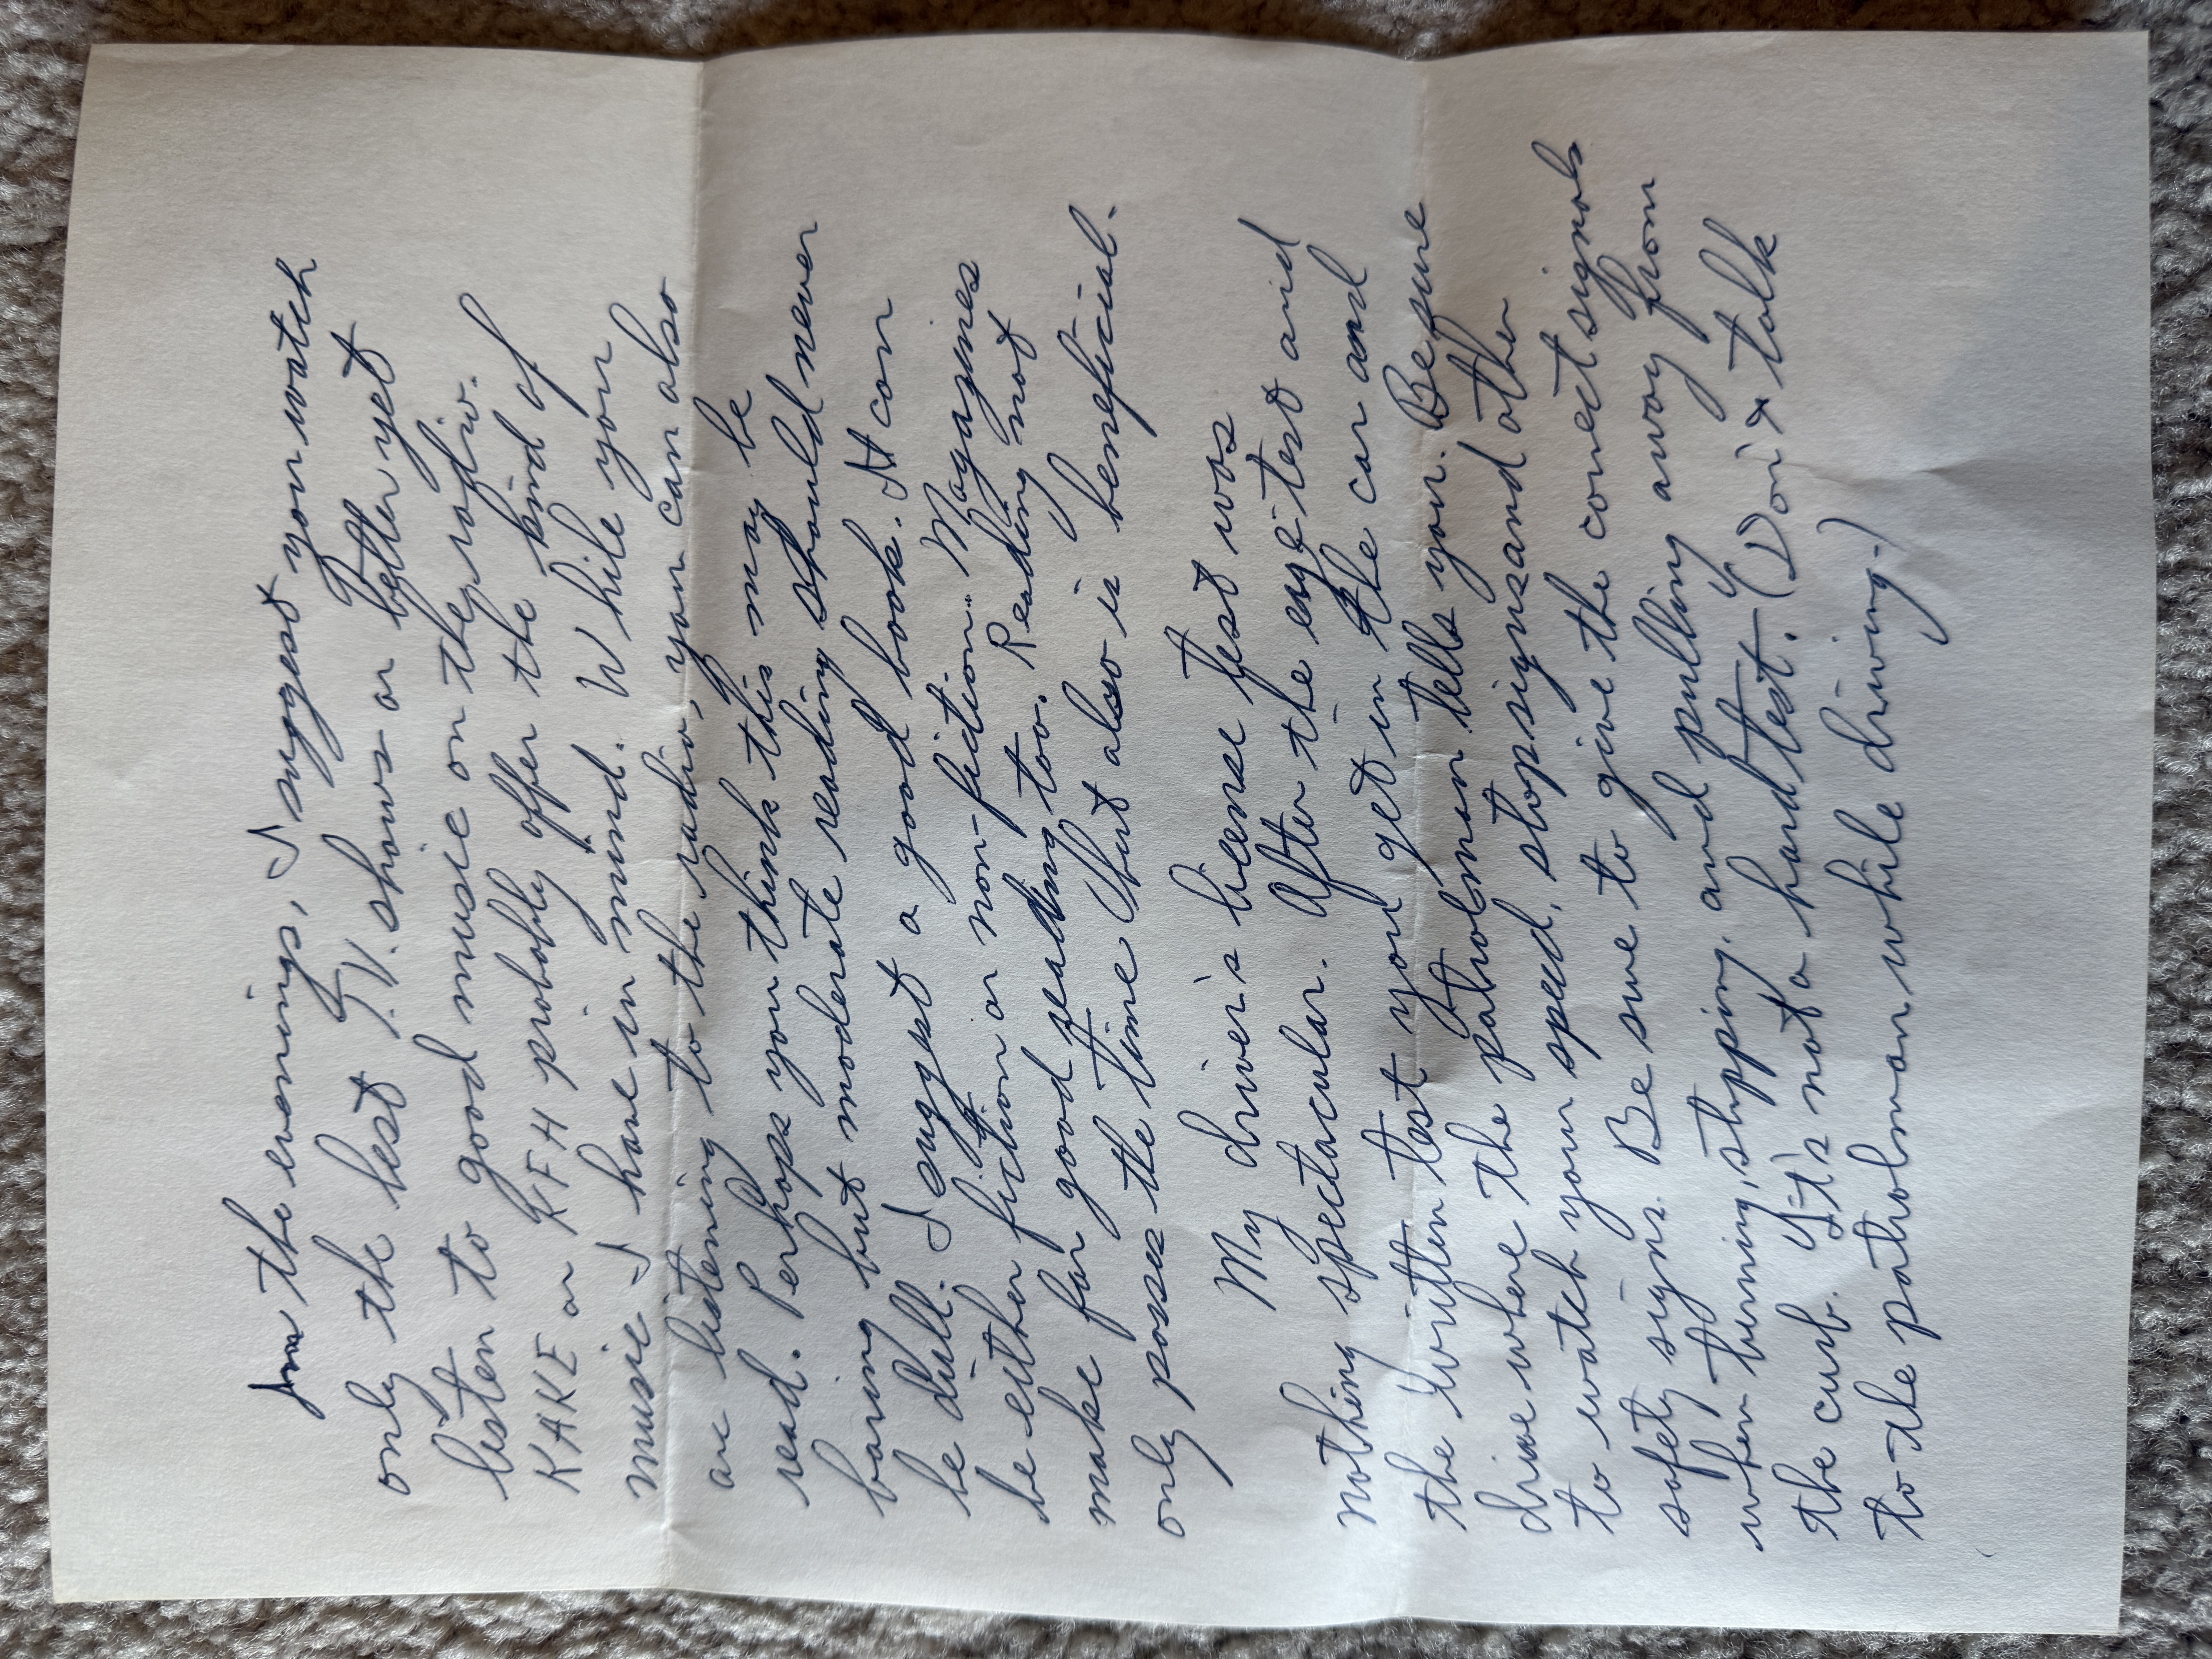 In the evenings, I suggest you watch
only the best T.V. shows or better yet
listen to good music on the radio.
KAKE or KFH probably offer the kind of
music I have in mind. While you
are listening to the radio, you can also
read. Perhaps you think this may be
boring but moderate reading should never
be dull. I suggest a good book. It can
be either fiction or non-fiction. Magazines
make for good reading too. Reading not
only passes the time but also is beneficial.
My driver's license test was
nothing spectacular. After the eye test and
the written test you get in the car and
drive where the patrolman tells you. Be sure
to watch your speed, stop signs and other
safety signs. Be sure to give the correct signals
when turning, stopping, and pulling away from
the curb. It's not a hard test. (Don't talk
to the patrolman while driving.)